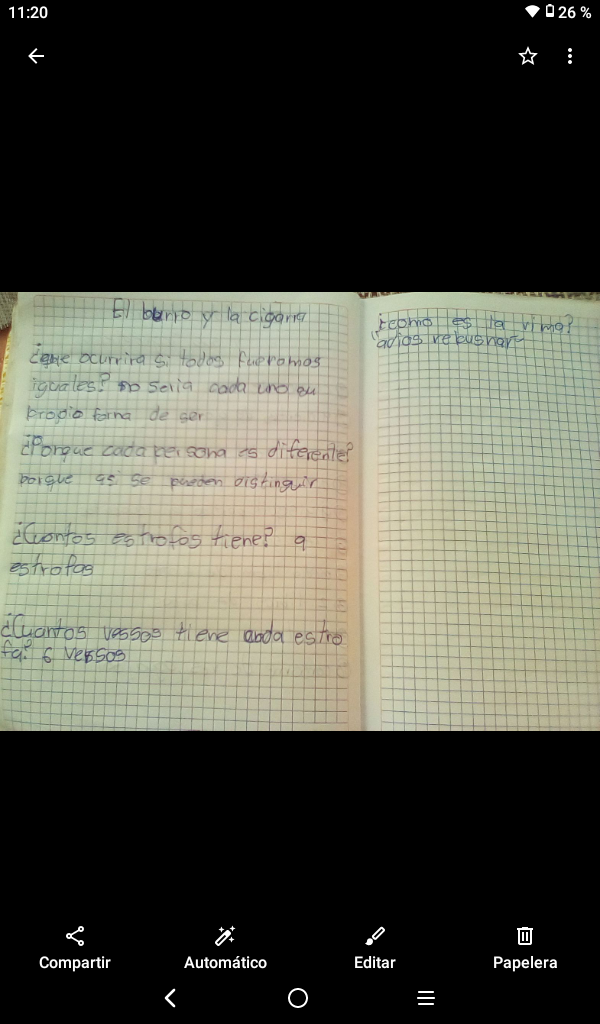 11:20
26 %
El burro y la cigarra
¿que ocurrira si todos fueramos
iguales? no seria cada uno eu
propio forma de ser
¿Porque cada persona es diferente?
porque asi se pueden distinguir
¿Cuantos estrofas tiene? 9
estrofas
¿Cuantos vessos tiene cada estro
fa? 6 vessos
¿como es la rima?
"adios rebusnar
Compartir
Automático
Editar
Papelera